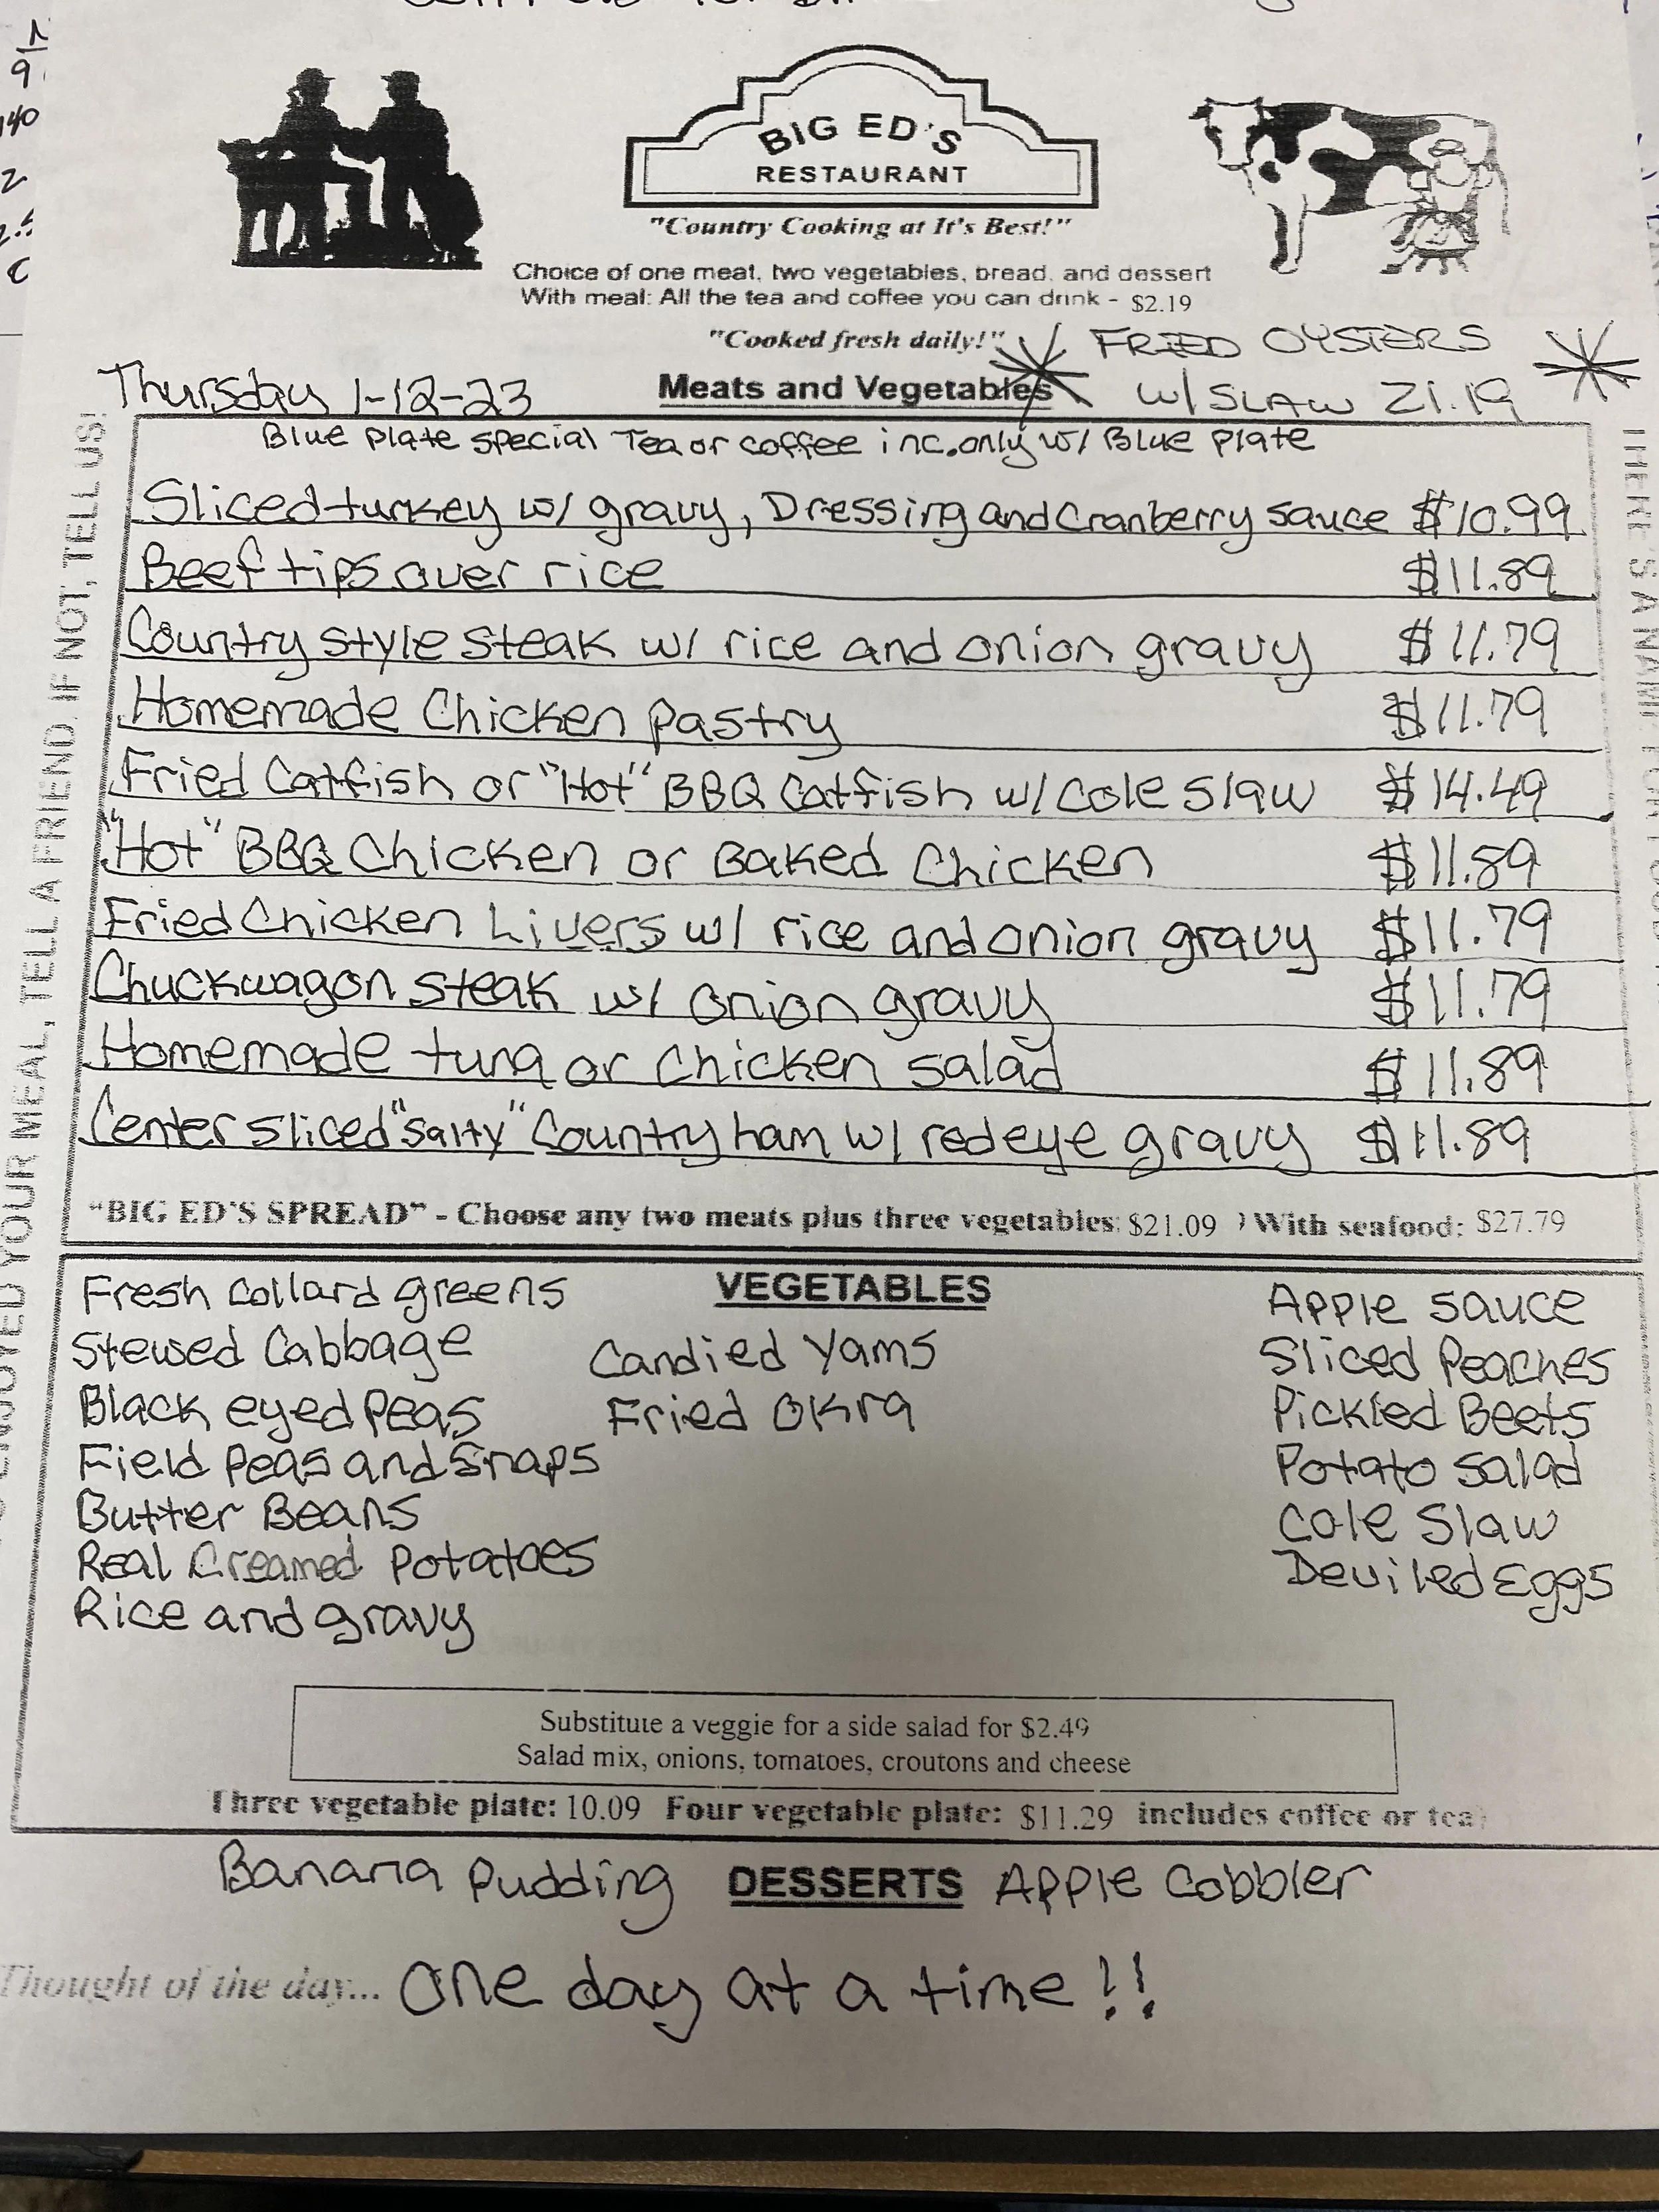 BIG ED'S
RESTAURANT
"Country Cooking at It's Best!"
Choice of one meat, two vegetables, bread, and dessert
With meal: All the tea and coffee you can drink - $2.19
"Cooked fresh daily!"
FRIED OYSTERS
W/ SLAW 21.19
Thursday 1-12-23
Meats and Vegetables
Blue Plate Special Tea or coffee inc. only w/ Blue Plate
Sliced turkey w/ gravy, Dressing and Cranberry sauce $10.99
Beef tips over rice $11.89
Country style steak w/ rice and onion gravy $11.79
Homemade Chicken Pastry $11.79
Fried Catfish or "Hot" BBQ Catfish w/ Cole Slaw $14.49
"Hot" BBQ Chicken or Baked Chicken $11.89
Fried Chicken Livers w/ rice and onion gravy $11.79
Chuckwagon steak w/ onion gravy $11.79
Homemade tuna or Chicken salad $11.89
Center sliced "Salty" Country ham w/ redeye gravy $11.89
"BIG ED'S SPREAD" - Choose any two meats plus three vegetables: $21.09 ) With seafood: $27.79
VEGETABLES
Fresh Collard greens
Stewed Cabbage
Black eyed Peas
Field Peas and Snaps
Butter Beans
Real Creamed Potatoes
Rice and gravy
Candied Yams
Fried Okra
Apple Sauce
Sliced Peaches
Pickled Beets
Potato Salad
Cole Slaw
Deviled Eggs
Substitute a veggie for a side salad for $2.49
Salad mix, onions, tomatoes, croutons and cheese
Three vegetable plate: 10.09 Four vegetable plate: $11.29 includes coffee or tea)
DESSERTS
Banana Pudding
Apple Cobbler
Thought of the day... One day at a time!!
YOUR MEAL, TELL A FRIEND. IF NOT, TELL US!